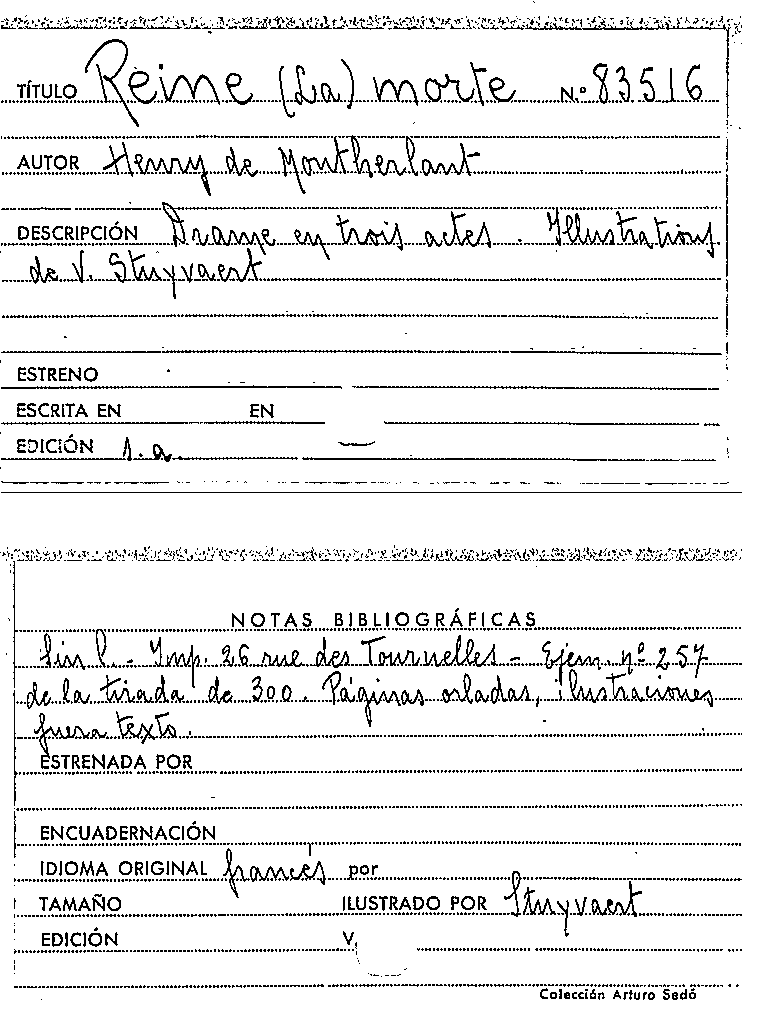 TÍTULO Reine (La) morte N.º 83516
AUTOR Henry de Montherlant
DESCRIPCIÓN Drame en trois actes. Illustrations
de V. Stuyvaert
ESTRENO
ESCRITA EN EN
EDICIÓN s.a.
NOTAS BIBLIOGRÁFICAS
Sin l. - Imp. 26 rue des Tournelles - Ejem. nº 257
de la tirada de 300. Páginas orladas, ilustraciones
fuera texto.
ESTRENADA POR
ENCUADERNACIÓN
IDIOMA ORIGINAL francés por
TAMAÑO ILUSTRADO POR Stuyvaert
EDICIÓN V.
Colección Arturo Sedó